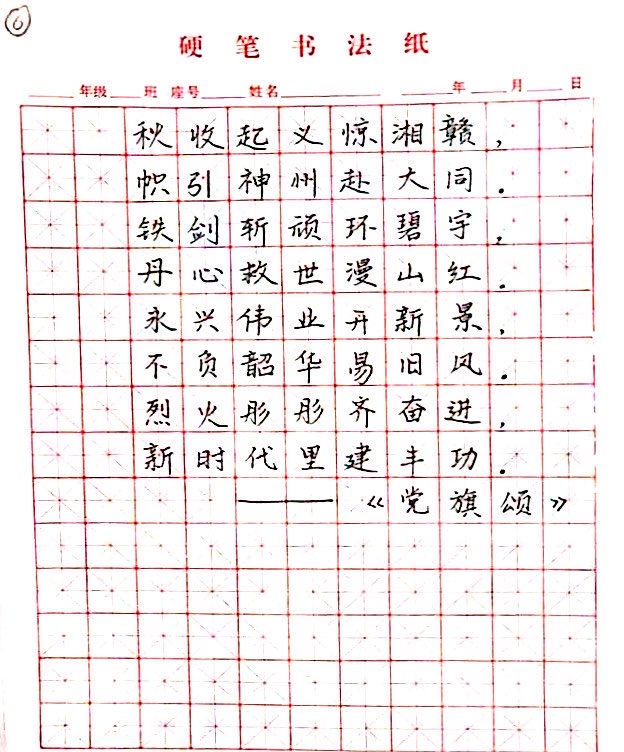 ⑥
硬笔书法纸
年级 班 座号 姓名 年 月 日
秋收起义惊湘赣,
帜引神州赴大同.
铁剑斩顽环碧宇,
丹心救世漫山红.
永兴伟业开新景,
不负韶华易旧风.
烈火彤彤齐奋进,
新时代里建丰功.
——《党旗颂》